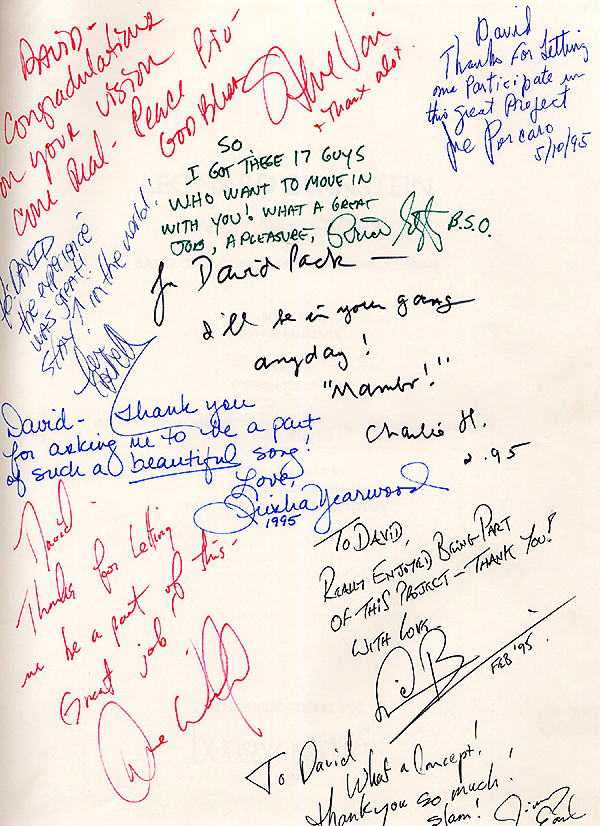 DAVID -
Congradulations
on your vision
come Real - Peace Pió
GOD Bless
Steve Vai
+ Thanx alot
David
Thanks For Letting
me Participate in
this great Project
Joe Porcaro
5/10/95
SO
I GOT THESE 17 GUYS
WHO WANT TO MOVE IN
WITH YOU! WHAT A GREAT
JOB, A PLEASURE,
B.S.O.
to: DAVID
the experience
was great!!
STAY ↑ in the world!
For David Pack —
I'll be in your gang
anyday!
"Mambo!"
Charlie H.
2.95
David - Thank you
for asking me to be a part
of such a beautiful song!
Love,
Trisha Yearwood
1995
David -
Thanks for Letting
me be a part of this -
Great job
TO DAVID,
REALLY ENJOYED BEING PART
OF THIS PROJECT - THANK YOU!
WITH LOVE
FEB '95.
To David
What a Concept!
thank you so much!
Slam!
Jimmy
Earl